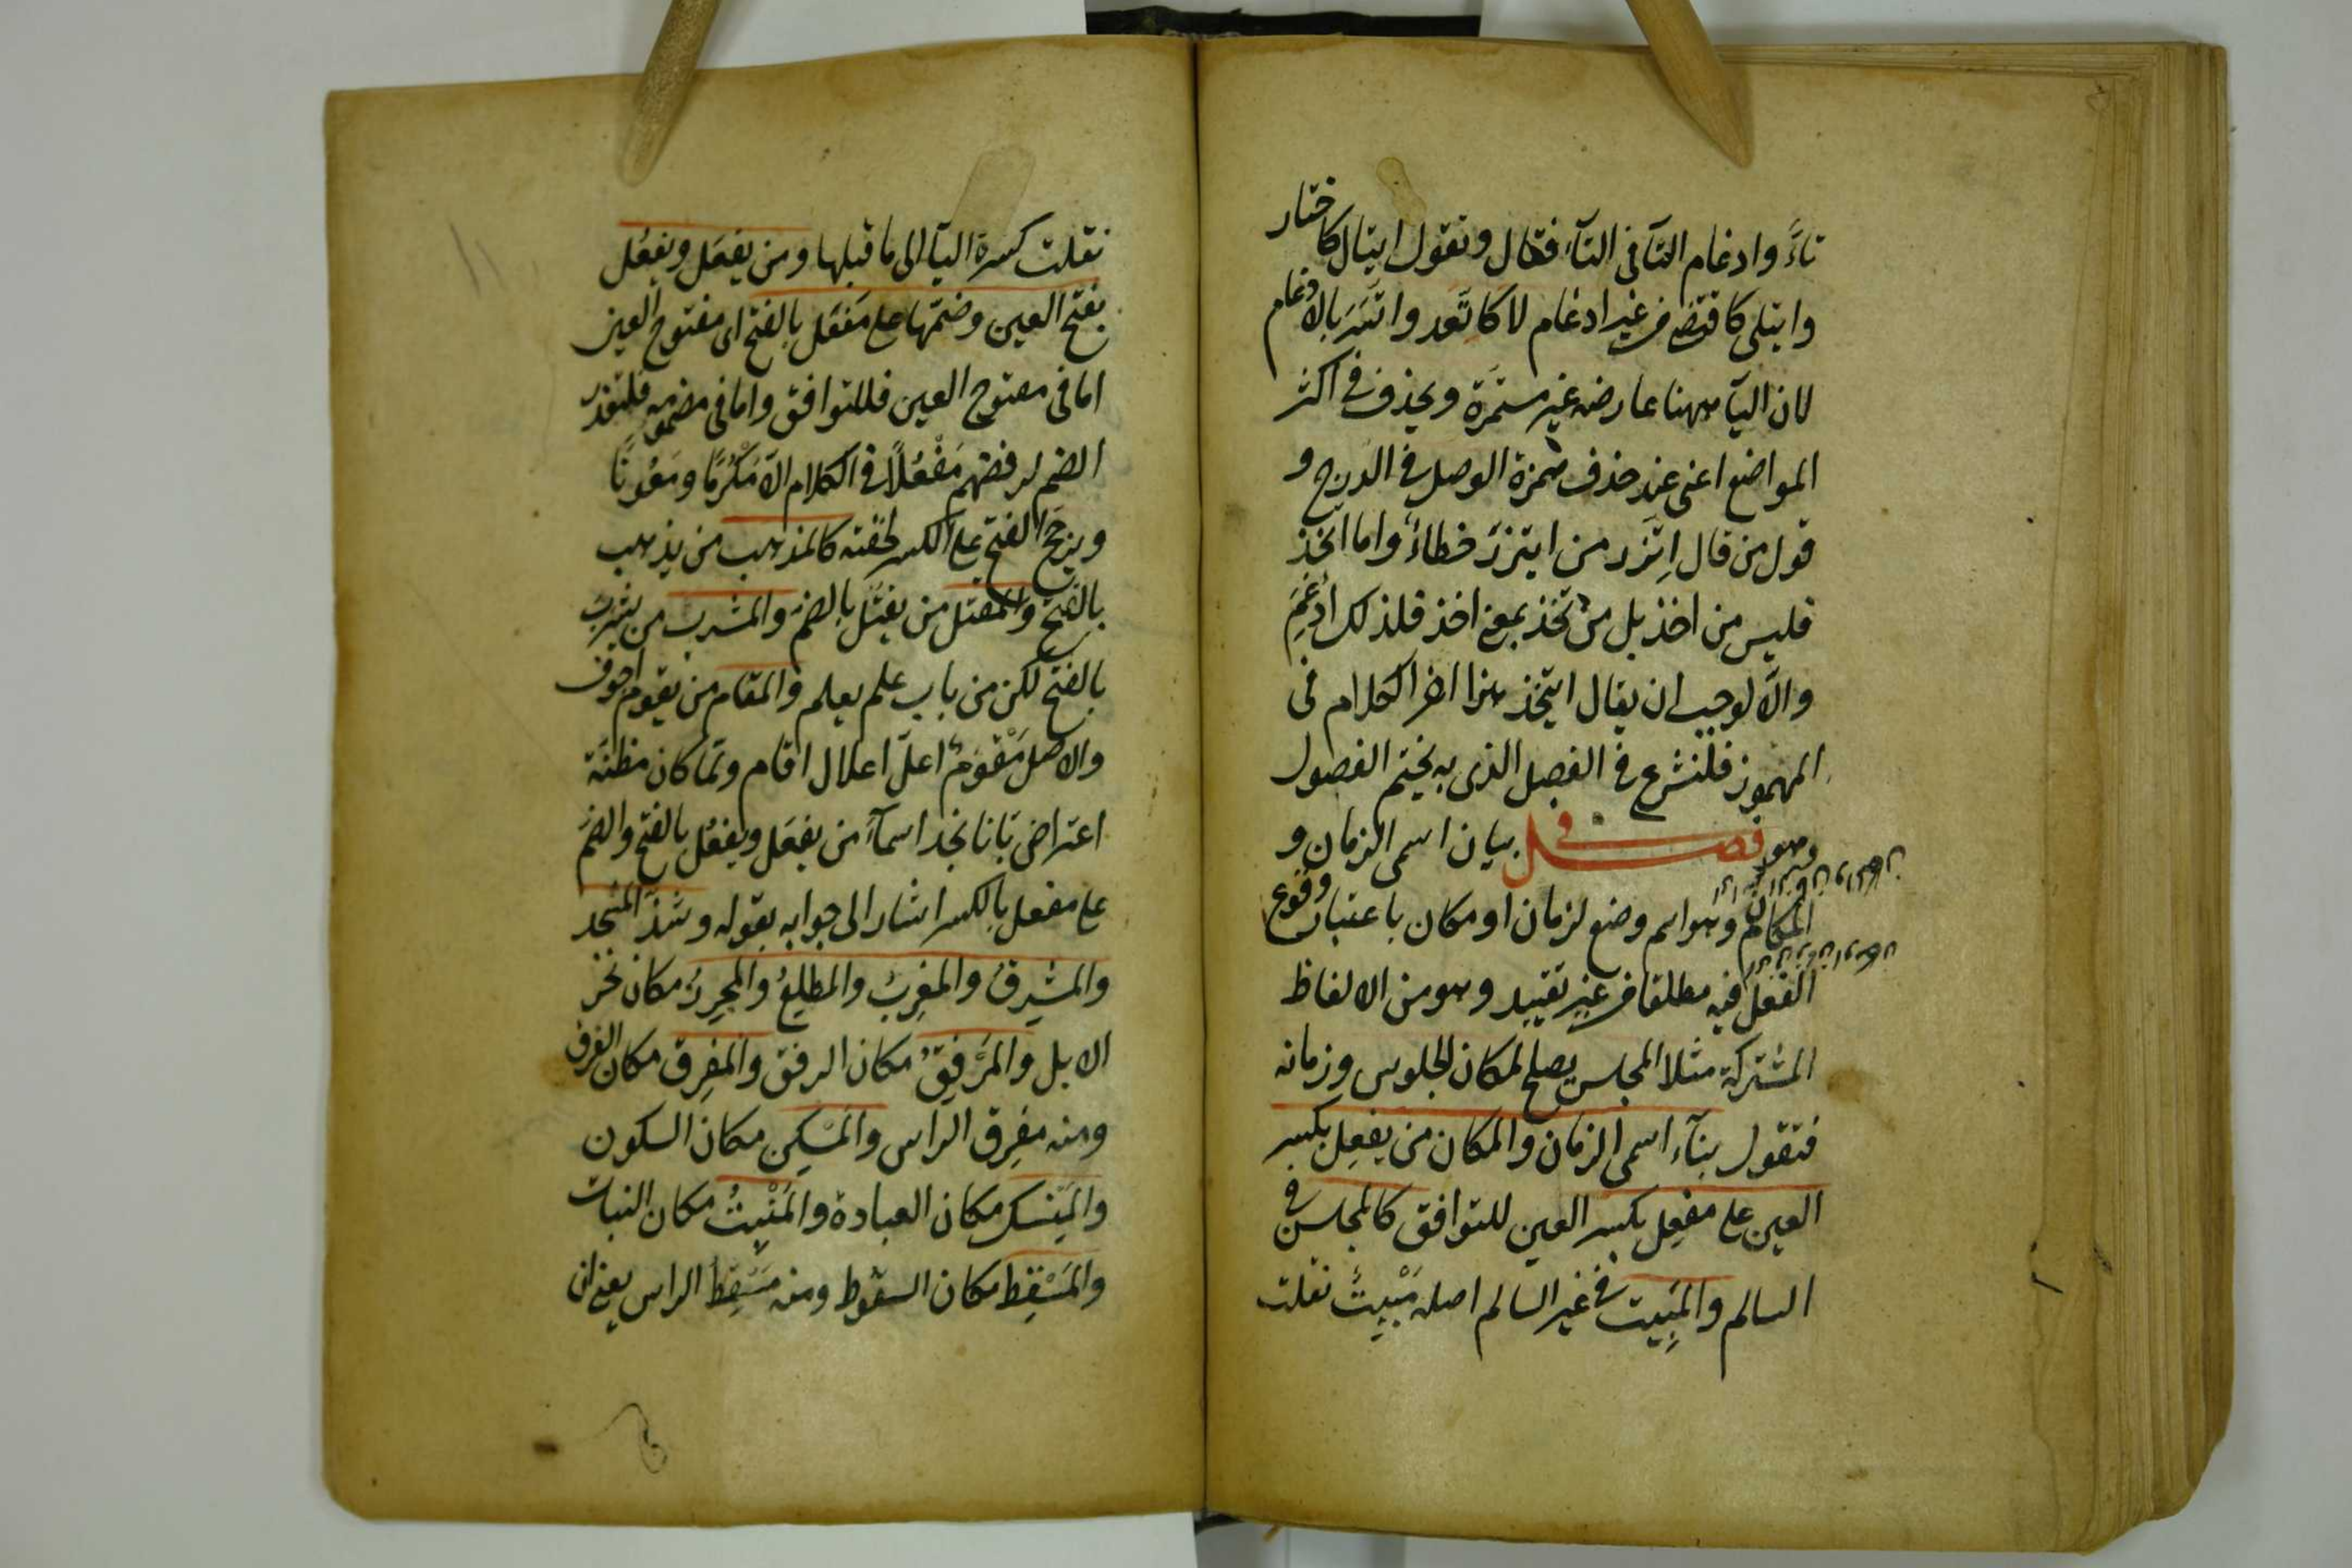 تاءً وادغام التآ فى التآء فقال وتقول ايتال كاختار
وايتلى كاقتضى من غير ادغام لا كاتّعد واتّسر بالادغام
لان اليآ ههنا عارضة غير مستمرّة ويحذف فى اكثر
المواضع اعنى عند حذف همزة الوصل فى الدرج و
قول من قال اِتّزر من ايتزر خطاءٌ واما اتخذ
فليس من اخذ بل من تخذ بمعنى اخذ فلذلك ادغم
والّا لوجب ان يقال ايتخذ هذا اخر الكلام فى
المهموز فلنشرع فى الفصل الذى به يختم الفصول
فصل فى بيان اسمى الزمان و
المكان وهو اسم وضع لزمان او مكان باعتبار وقوع
الفعل فيه مطلقا من غير تقييد وهو من الالفاظ
المشتركة مثلا المجلس يصلح لمكان الجلوس وزمانه
فتقول بنآء اسمى الزمان والمكان من يفعِل بكسر
العين على مفعِل بكسر العين للتوافق كالمجلس فى
السالم والمَبِيت فى غير السالم اصله مَبْيِتٌ نقلت
نقلت كسرة اليآ الى ما قبلها ومن يفعَل ويفعُل
بفتح العين وضمّها على مَفعَل بالفتح اى مفتوح العين
اما فى مفتوح العين فللتوافق واما فى مضمومه فلتعذر
الضم لرفضهم مَفْعُلًا فى الكلام الّا مَكْرُمًا ومَعُونًا
ويرجّح الفتح على الكسر لخفته كالمذهب من يذهب
بالفتح والمقتل من يقتل بالضم والمشرب من يشرب
بالفتح لكن من باب علم يعلم والمقام من يقوم اجوف
والاصل مَقْوَمٌ اعلّ اعلال اقام ولمّا كان مظنّة
اعتراض بانا نجد اسمآءً من يفعَل ويفعُل بالفتح والضم
على مفعل بالكسر اشار الى جوابه بقوله وشذّ المسجد
والمشرِقُ والمغرِبُ والمطلِعُ والمجزِرُ مكان نحر
الابل والمَرفِقُ مكان الرفق والمفرِق مكان الفرق
ومنه مفرِق الراس والمَسْكِن مكان السكون
والمَنْسِك مكان العبادة والمَنْبِتُ مكان النبات
والمَسْقِط مكان السقوط ومنه مَسْقِطُ الراس يعنى ان